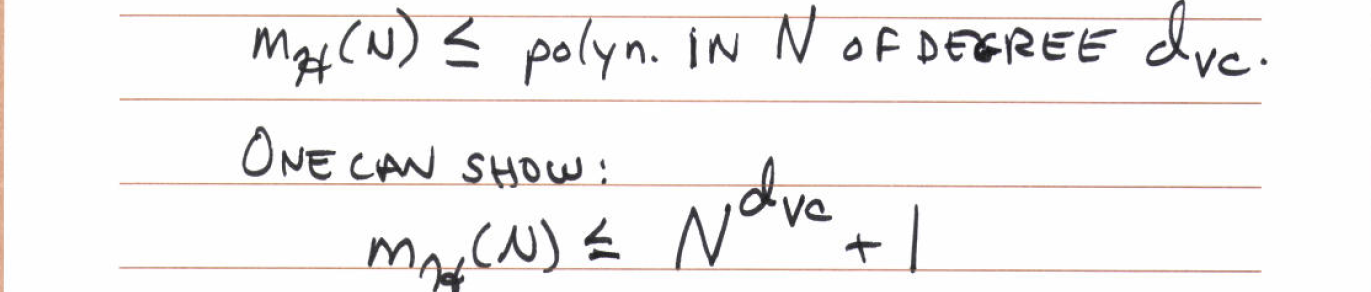 m_ℋ(N) ≤ polyn. IN N OF DEGREE d_vc.
ONE CAN SHOW:
m_ℋ(N) ≤ N^{d_vc} + 1